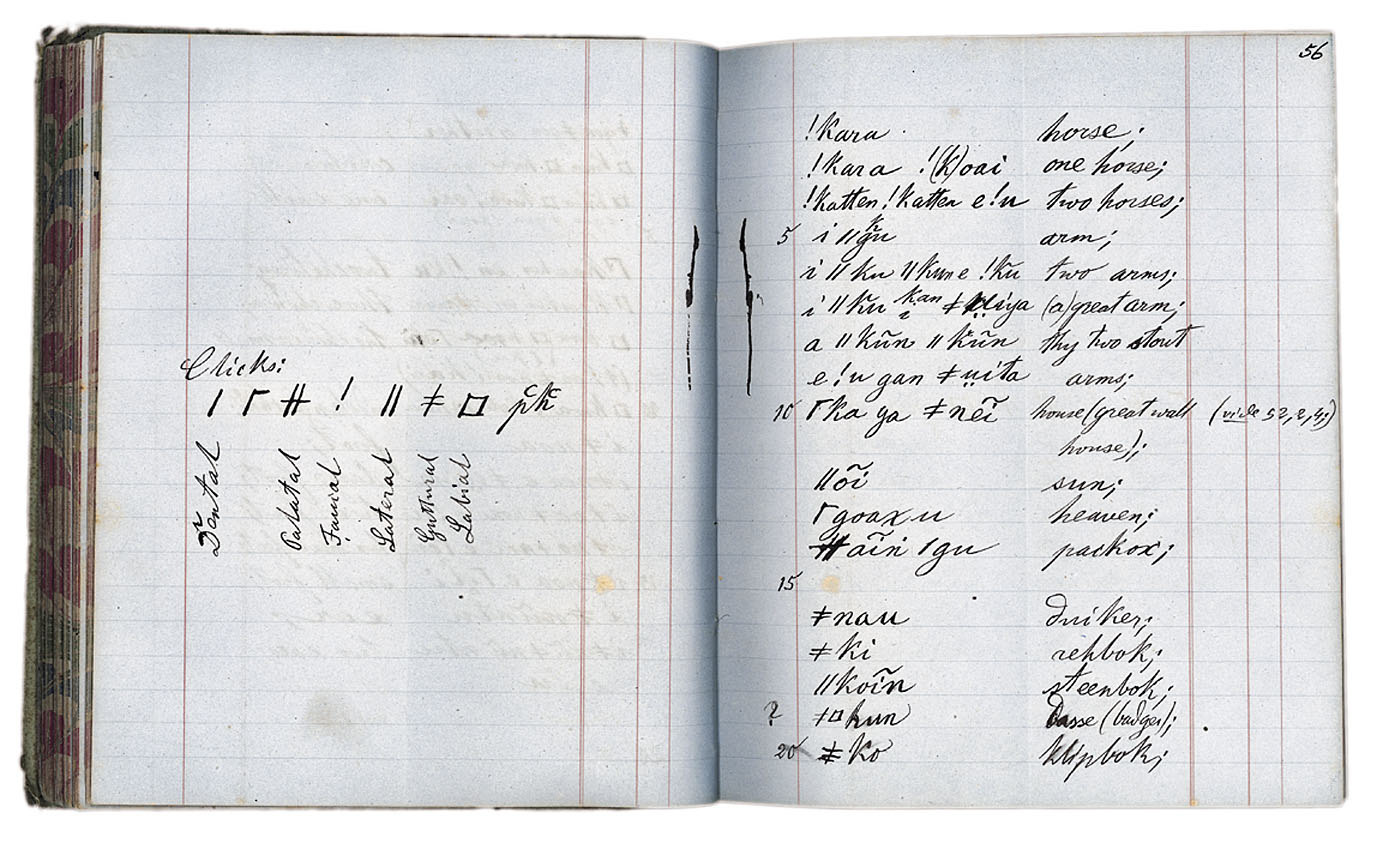 Clicks:
ǀ ᒥ ⧺ ! ǁ ǂ ◻
Dental
Palatal
Faucial
Lateral
Guttural
Labial
56
!kara horse;
!kara !(k)oai one horse;
!katten !katten e!u two horses;
5 i ǁg̃u arm;
i ǁku ǁkune !ku two arms;
i ǁku kan (a) great arm;
a ǁkũn ǁkũn thy two stout
e!u gan ǂuita arms;
10 ᒥka ga ǂneĩ house (great wall (vide 52, 2, 4;)
house);
ǁõĩ sun;
ᒥgoaxu heaven;
⧺aĩn ǀgu packox;
15
ǂnau duiker;
ǂki rehbok;
ǁkoĩn steenbok;
? ǂ◻kun dasse (badger);
20 ǂko klipbok;